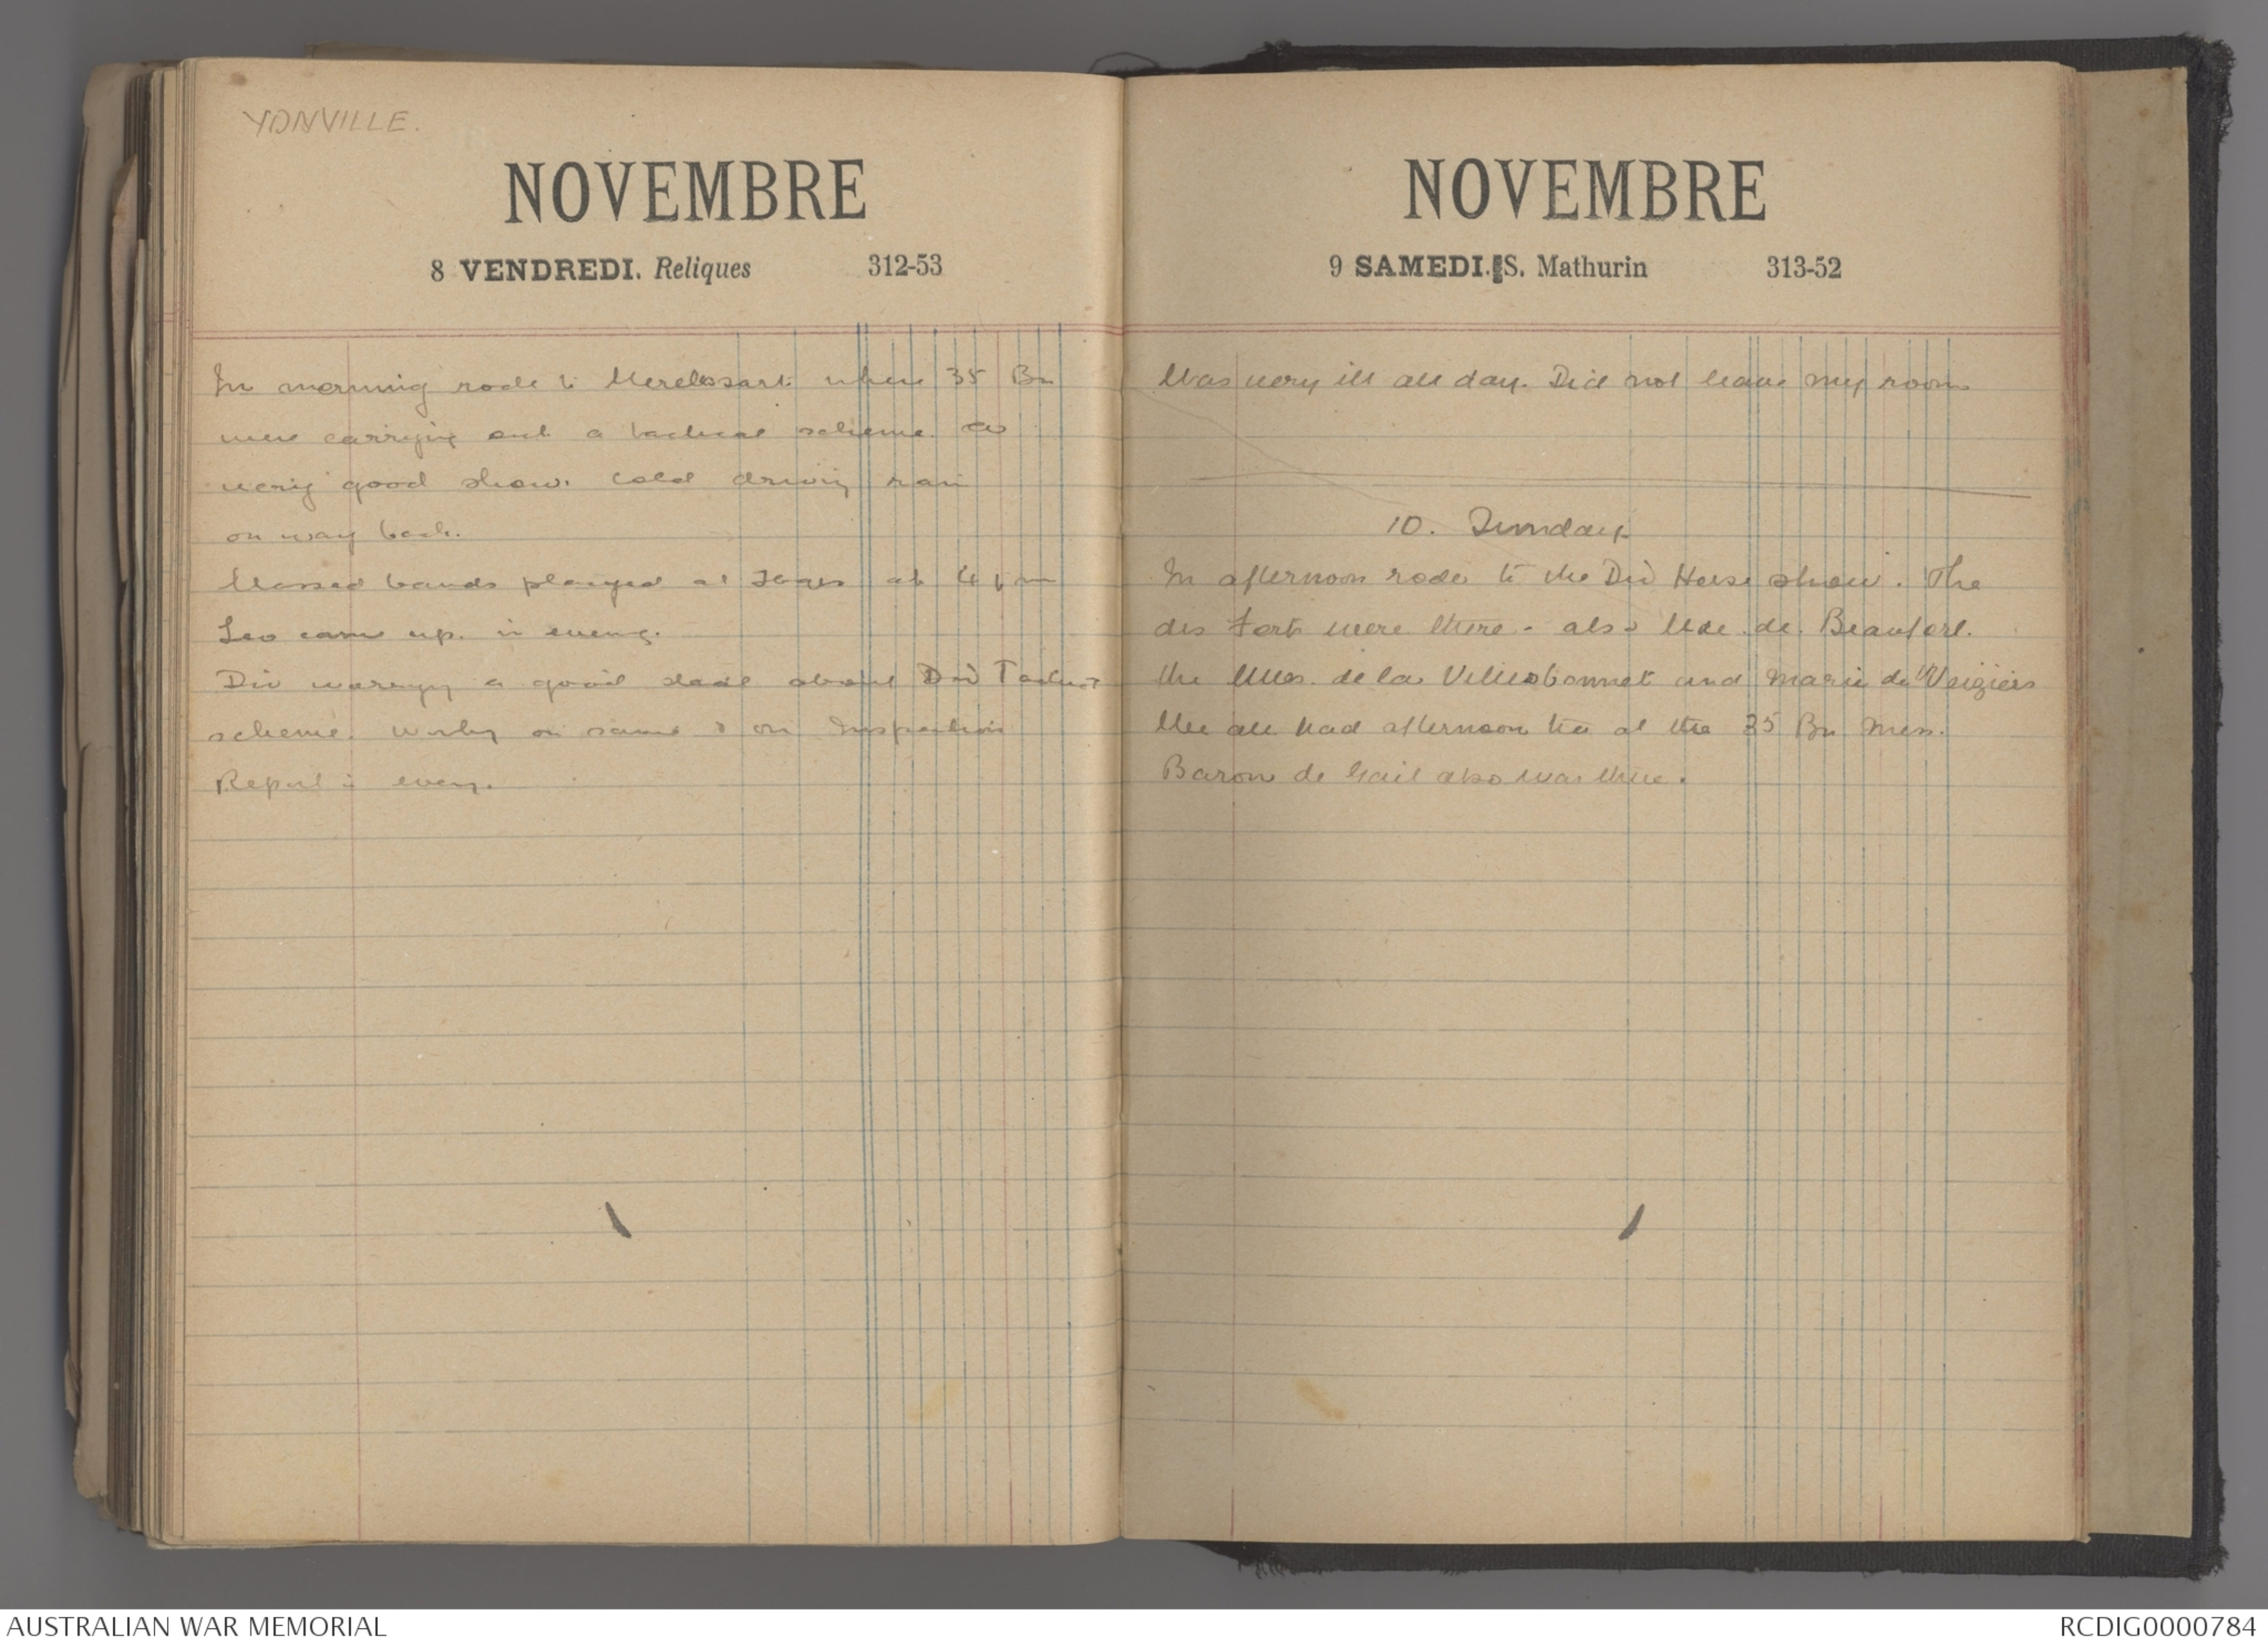 YONVILLE.
NOVEMBRE
8 VENDREDI. Reliques 312-53
In morning rode to Merelessart where 35 Bn
were carrying out a tactical scheme. A
very good show. Cold driving rain
on way back.
Massed bands played at at 4 pm
Leo came up. in eveng.
Div worrying a good deal about Div Tactical
scheme. Workg on same & on Inspection
Report in eveng.
NOVEMBRE
9 SAMEDI. S. Mathurin 313-52
Was very ill all day. Did not leave my room
10. Sunday
In afternoon rode to the Div Horse show. The
des Forts were there - also Mde. de. Beaufort.
the Mlles. de la Villesbonnet and Marie de
We all had afternoon tea at the 35 Bn Mess.
Baron de also was there.
AUSTRALIAN WAR MEMORIAL
RCDIG0000784